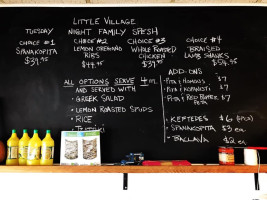 LITTLE VILLAGE
TUESDAY
NIGHT FAMILY SPESH
CHOICE #1
SPANAKOPITA
$39.95
CHOICE #2
LEMON OREGANO
RIBS
$44.95
CHOICE #3
WHOLE ROASTED
CHICKEN
$39.95
CHOICE #4
BRAISED
LAMB SHANKS
$54.95
ALL OPTIONS SERVE 4
AND SERVED WITH
• GREEK SALAD
• LEMON ROASTED SPUDS
• RICE
• Tzatziki
ADD-ONS
PITA & HUMOUS $7
PITA & $7
PITA & RED PEPPER $7
FETA
- KEFTEDES $6 (4PCS)
- SPANAKOPITA $3 EA
- BACLAVA $2 EA